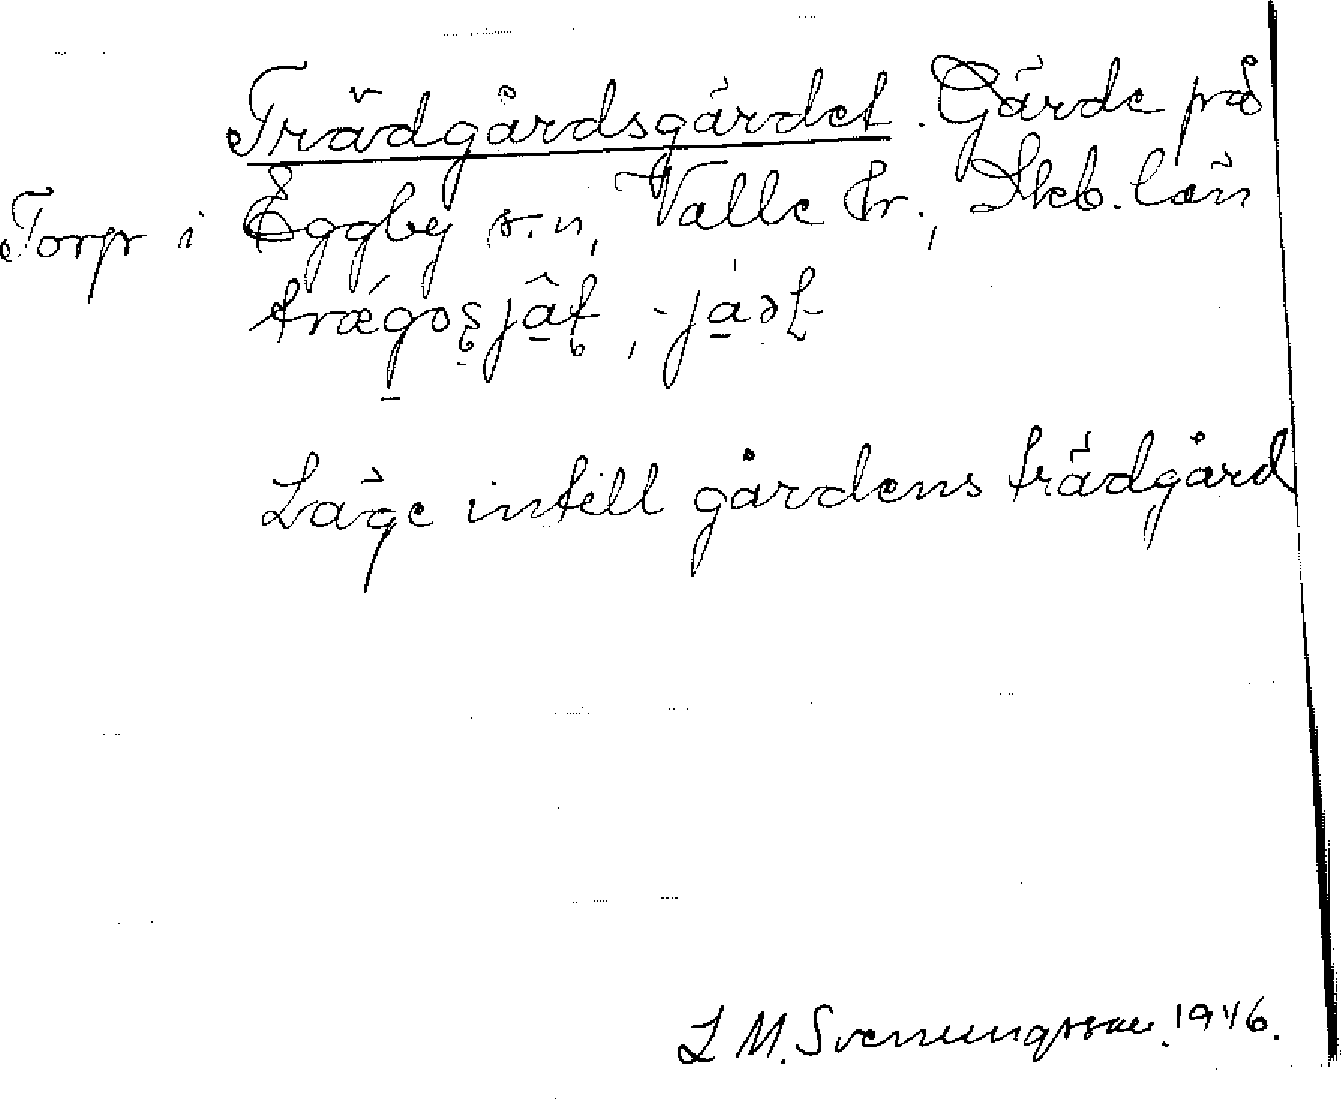 Trädgårdsgärdet. Gärde på
Torp i Eggby s:n, Valle hr., Skb. län
Läge intill gårdens trädgård
L M. Svenungsson. 1946.